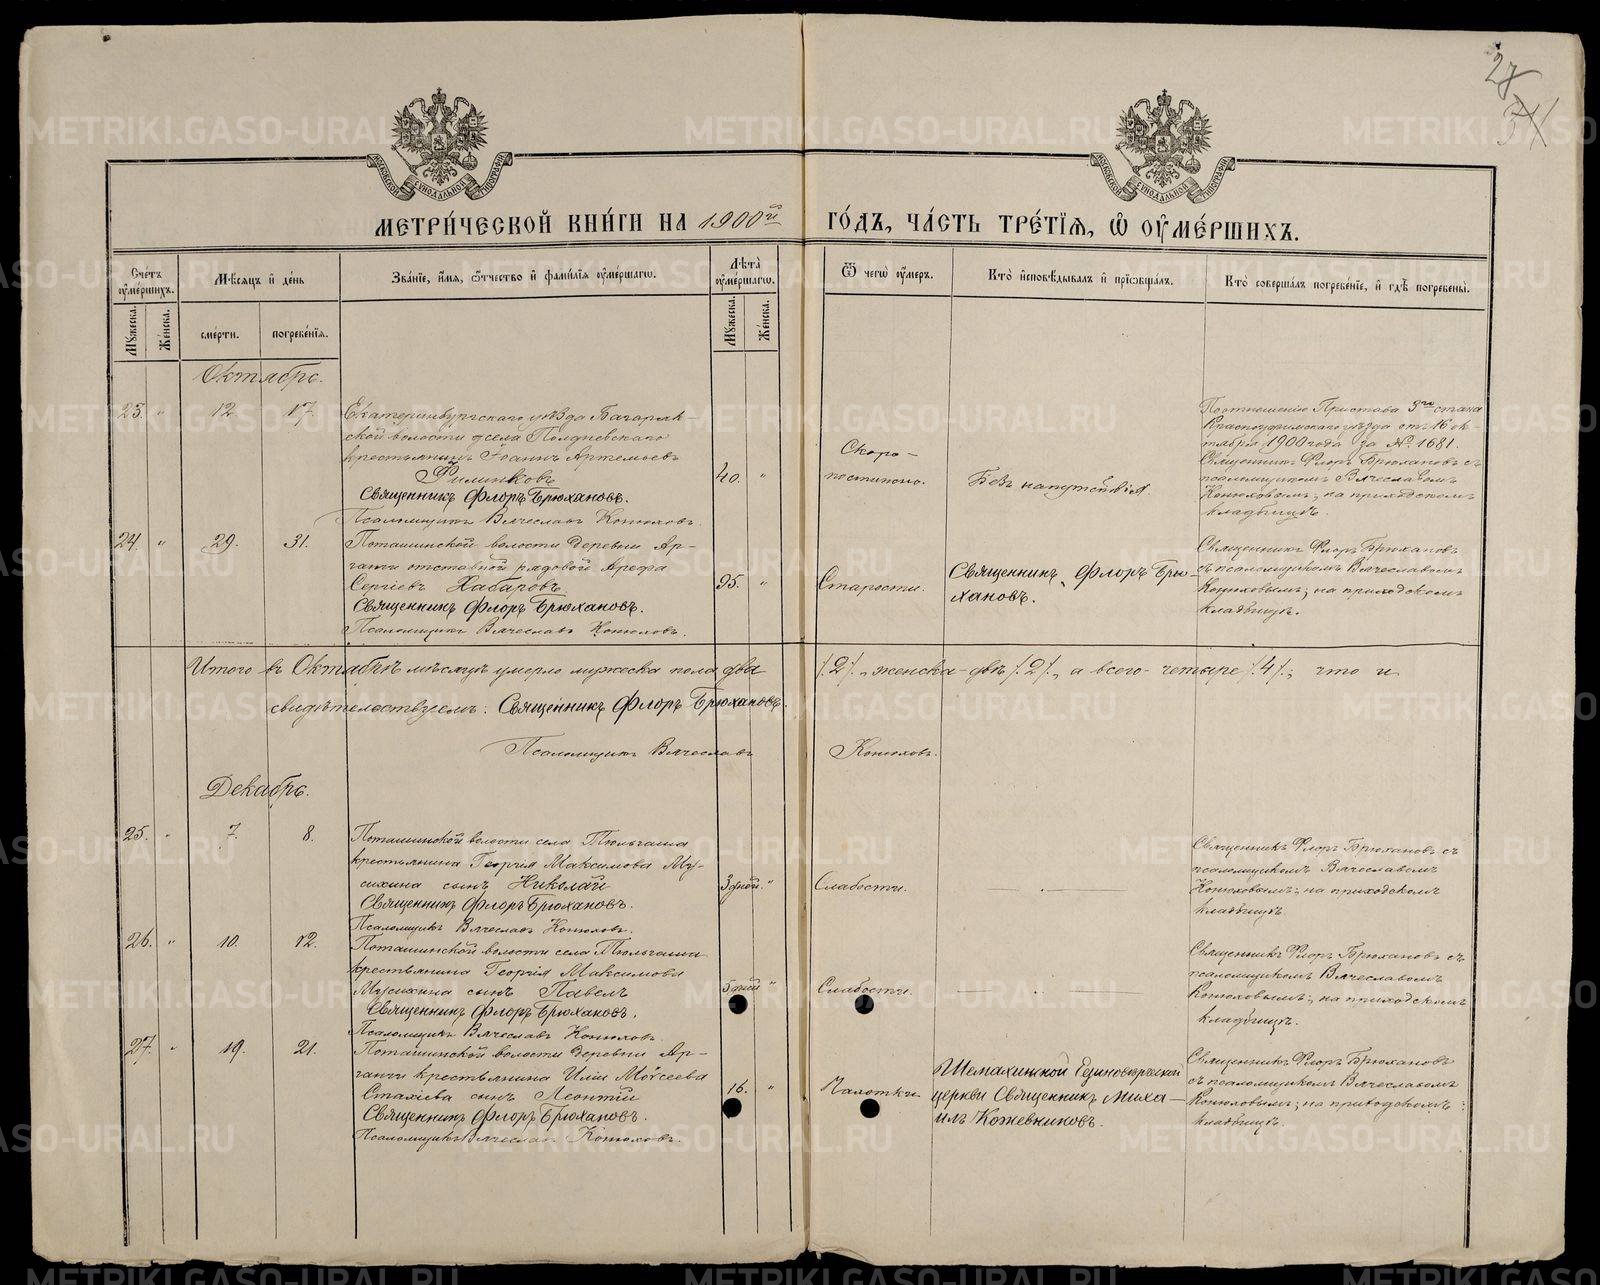 27
МОСКОВСКОЙ СѴНОДАЛЬНОЙ ТИПОГРАФІИ
МОСКОВСКОЙ СѴНОДАЛЬНОЙ ТИПОГРАФІИ
МЕТРИ́ЧЕСКОЙ КНИ́ГИ НА 1900й ГО́ДЪ, ЧА́СТЬ ТРЕ́ТІѦ, Ѡ ОУМЕ́РШИХЪ.
Счетъ оумершихъ.
Мужеска.
Женска.
Мѣсяцъ и день
смерти.
погребенія.
Званіе, имя, отчество и фамилія оумершагѡ.
Лѣта оумершагѡ.
Мужеска.
Женска.
Ѿ чегѡ оумеръ.
Кто исповѣдывалъ и пріобщалъ.
Кто совершалъ погребеніе, и гдѣ погребены.
Октябрь.
23. " 12 17. Екатеринбургскаго уѣзда
ской волости села Полдневскаго
крестьянинъ Іоаннъ Артемьевъ
Филинковъ 40. "
Священникъ Флоръ Брюхановъ.
Псаломщикъ Вячеславъ Конюховъ.
Скоро-
постижно.
Безъ напутствія.
По отношенію Пристава 3го стана
Красноуфимскаго уѣзда отъ 16 ок
тября 1900 года за № 1681.
Священникъ Флоръ Брюхановъ съ
псаломщикомъ Вячеславомъ
Конюховымъ; на приходскомъ
кладбищѣ.
24. " 29. 31. Поташинской волости деревни Ар-
ганчи отставной рядовой Арефа
Сергіевъ Хабаровъ 95. "
Священникъ Флоръ Брюхановъ.
Псаломщикъ Вячеславъ Конюховъ.
Старости.
Священникъ Флоръ Брю-
хановъ.
Священникъ Флоръ Брюхановъ
съ псаломщикомъ Вячеславомъ
Конюховымъ; на приходскомъ
кладбищѣ.
Итого въ Октябрѣ мѣсяцѣ умерло мужеска пола два /.2/., женска - двѣ /.2/., а всего - четыре /.4/.; что и
свидѣтельствуемъ: Священникъ Флоръ Брюхановъ.
Псаломщикъ Вячеславъ Конюховъ.
Декабрь.
25. " 7. 8. Поташинской волости села Тюльгаша
крестьянина Георгія Максимова Му-
сихина сынъ Николай 3 дней. "
Священникъ Флоръ Брюхановъ.
Псаломщикъ Вячеславъ Конюховъ.
Слабости.
Священникъ Флоръ Брюхановъ съ
псаломщикомъ Вячеславомъ
Конюховымъ; на приходскомъ
кладбищѣ.
26. " 10. 12. Поташинской волости села Тюльгаша
крестьянина Георгія Максимова
Мусихина сынъ Павелъ 5 дней "
Священникъ Флоръ Брюхановъ.
Псаломщикъ Вячеславъ Конюховъ.
Слабости.
Священникъ Флоръ Брюхановъ съ
псаломщикомъ Вячеславомъ
Конюховымъ; на приходскомъ
кладбищѣ.
27. " 19. 21. Поташинской волости деревни Ар-
ганчи крестьянина Иліи Моѵсеева
Стахіева сынъ Леонтій 16. "
Священникъ Флоръ Брюхановъ.
Псаломщикъ Вячеславъ Конюховъ.
Чахотки.
Шемахинской Единовѣрческой
церкви Священникъ Миха-
илъ Кожевниковъ.
Священникъ Флоръ Брюхановъ
съ псаломщикомъ Вячеславомъ
Конюховымъ; на приходскомъ
кладбищѣ.
METRIKI.GASO-URAL.RU